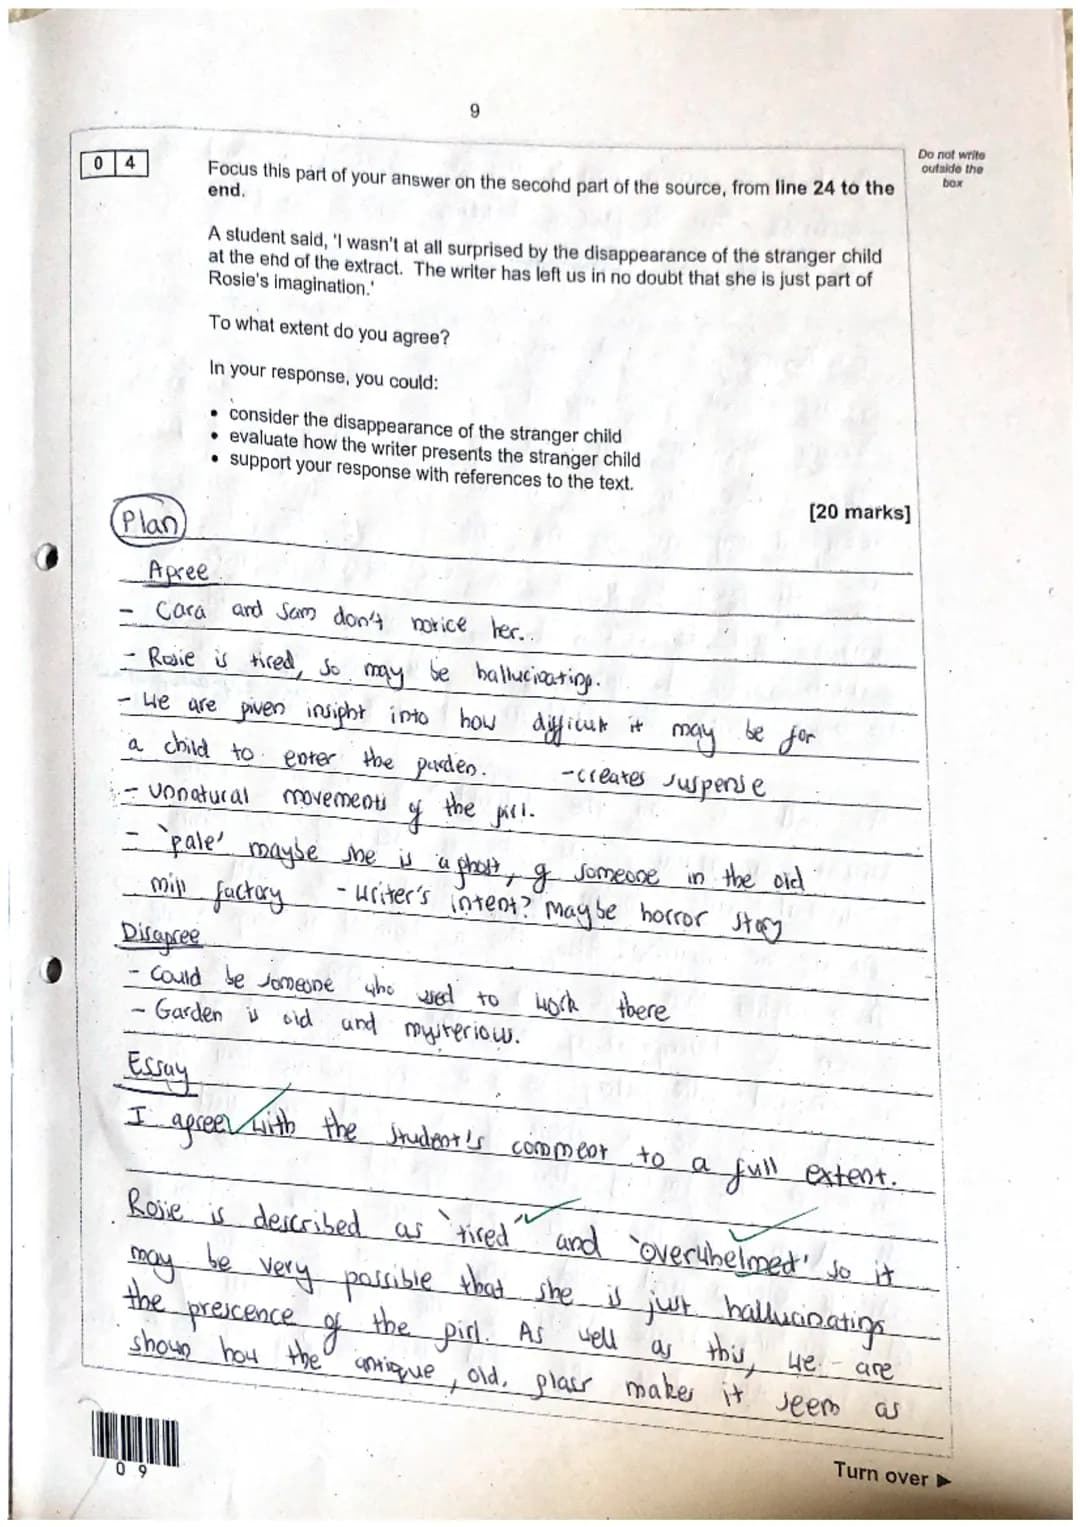 9
Do not write
outside the
box
0 4
Focus this part of your answer on the second part of the source, from line 24 to the
end.
A student said, 'I wasn't at all surprised by the disappearance of the stranger child
at the end of the extract. The writer has left us in no doubt that she is just part of
Rosie's imagination.'
To what extent do you agree?
In your response, you could:
• consider the disappearance of the stranger child
• evaluate how the writer presents the stranger child
• support your response with references to the text.
[20 marks]
Plan
Agree
- Cara and Sam don't notice her.
- Rosie is tired, so may be hallucinating.
- We are given insight into how difficult it may be for
a child to enter the garden. - creates suspense
- Unnatural movements of the girl.
- 'pale' maybe she is a ghost, of someone in the old
mill factory - writer's intent? maybe horror story
Disagree
- Could be someone who used to work there
- Garden is old and mysterious.
Essay
I agree with the student's comment to a full extent.
Rosie is described as 'tired' and 'overwhelmed' so it
may be very possible that she is just hallucinating
the prescence of the girl. As well as this, we are
shown how the antique, old, glass makes it seem as
0 9
Turn over ►